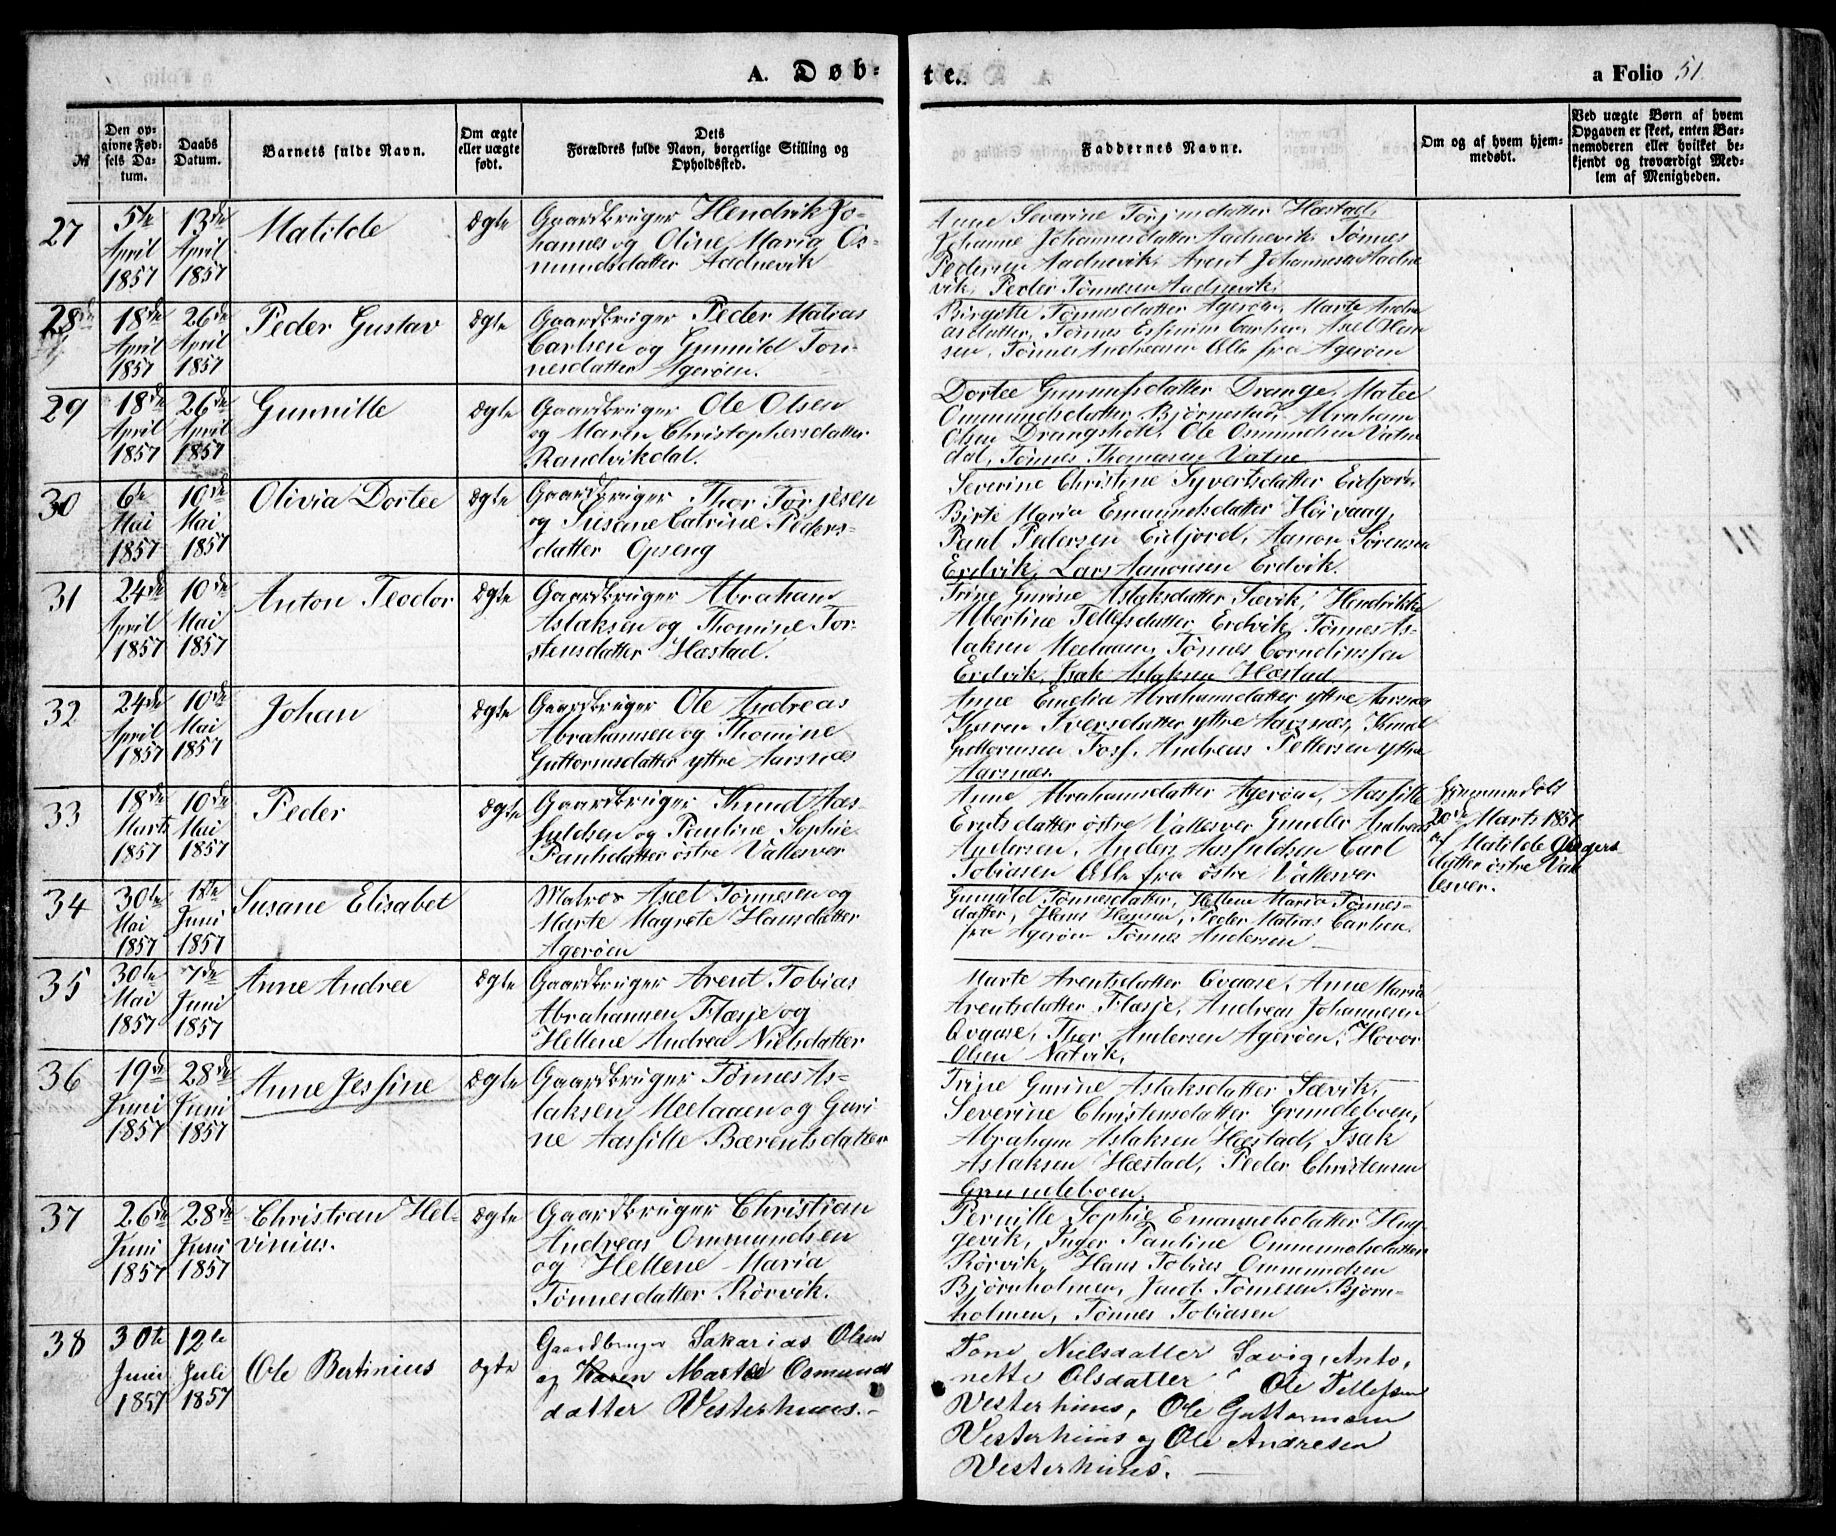 A. Døb-
te.
a Folio 51.
№
Den op-
givne Fød-
sels Da-
tum.
Daabs
Datum.
Barnets fulde Navn.
Om ægte
eller uægte
født.
Dets
Forældres fulde Navn, borgerlige Stilling og
Opholdssted.
Faddernes Navne.
Om og af hvem hjem-
medøbt.
Ved uægte Børn af hvem
Opgaven er skeet, enten Bar-
nemoderen eller hvilket be-
kjendt og troværdigt Med-
lem af Menigheden.
27
5te
April
1857
13de
April
1857
Matilde
Ægte
Gaardbruger Hendrik Jo-
hannes og Oline Maria Os-
mundsdatter Aadnevik
Anne Severine Torjusdatter Hæstad,
Johanne Johannesdatter Aadnevik, Tønnes
Pedersen Aadnevik, Arent Johannesen Aadne
vik, Peder Tønnesen Aadnevik.
28
18de
April
1857
26de
April
1857
Peder Gustav
Ægte
Gaardbruger Peder Matias
Carlsen og Gunnild Ton-
nesdatter Agerøen.
Birgitte Tønnesdatter Agerøen, Marte Andre
asdatter, Tønnes Carlsen, Axel Han
sen, Tønnes Andreasen Alle fra Agerøen
29
18de
April
1857
26de
April
1857
Gunnille
Ægte
Gaardbruger Ole Olsen
og Maren Christophersdatter
Randvikdal.
Dortee Gunnufsdatter Drange, Matee
Ommundsdatter Bjørnestad, Abraham
Olsen Drangsholt, Ole Osmundsen Vatne
dal, Tønnes Thomasen Vatne
30
6te
Mai
1857
10de
Mai
1857
Olivia Dortee
Ægte
Gaardbruger Thor Torjesen
og Susane Catrine Peders-
datter Opseng
Severine Christine Syvertsdatter Eidjord,
Birte Maria Emanuelsdatter Høivaag,
Paul Pedersen Eidjord, Aanon Sørensen
Erdvik, Lars Aanonsen Erdvik.
31
24de
April
1857
10de
Mai
1857
Anton Teodor
Ægte
Gaardbruger Abraham
Aslaksen og Thomine Tor-
stensdatter Hæstad.
Trine Gurine Aslaksdatter Sævik, Hendrikke
Albertine Tellefsdatter Erdvik, Tønnes As-
laksen Meelaaen, Tønnes Corneliussen
Erdvik, Isak Aslaksen Hæstad
32
24de
April
1857
10de
Mai
1857
Johan
Ægte
Gaardbruger Ole Andreas
Abrahamsen og Thomine
Guttormsdatter yttre Aarsnæs
Anne Emelia Abrahamsdatter yttre Aarsnæs
Karen Iversdatter yttre Aarsnæs, Knud
Guttormsen Foss, Andreas Pettersen yttre
Aarsnæs.
33
18de
Marts
1857
10de
Mai
1857
Peder
Ægte
Gaardbruger Knud Aas-
fuldsen og Pauline Sophie
Paulsdatter østre Vallesver
Anne Abrahamsdatter Agerøen, Aasfille
datter østre Vallesver Gunder Andreas
Andersen, Anders Aasfuldsen Carl
Tobiasen Alle fra østre Vallesver
Hjemmedøbt
20de Marts 1857
af Matilde
datter østre Val
lesver.
34
30te
Mai
1857
1ste
Juni
1857
Susane Elisabet
Matros Axel Tønnesen og
Marte Magrete Hansdatter
Agerøen
Gunnild Tønnesdatter, Hellene Maria Tønnes-
datter, Hans Hansen, Peder Matias Carlsen
fra Agerøen Tønnes Andersen
35
30te
Mai
1857
7de
Juni
1857
Anne Andree
Ægte
Gaardbruger Arent Tobias
Abrahamsen Flasje og
Hellene Andrea Nielsdatter
Marte Arentsdatter Qvaase, Anne Maria
Arentsdatter Flasje, Andreas Johannesen
Qvaase, Thor Andersen Agerøen, Hovor
Olsen Natvik,
36
19de
Juni
1857
28de
Juni
1857
Anne Jessine
Ægte
Gaardbruger Tønnes As-
laksen Meelaaen og Guri-
ne Aasfille Bærentsdatter
Trine Gurine Aslaksdatter Sævik,
Severine Christensdatter Grundeboen,
Abraham Aslaksen Hæstad, Isak
Aslaksen Hæstad, Peder Christensen
Grundeboen.
37
26de
Juni
1857
28de
Juni
1857
Christian Hel-
vinius.
Ægte
Gaardbruger Christian
Andreas Ommundsen
og Hellene Maria
Tønnesdatter Rørvik.
Pernille Sophie Emanuelsdatter Hug-
gevik, Inger Pauline Ommundsdatter
Rørvik, Hans Tobias Ommundsen
Bjørnholmen, Jacob Tønnesen Bjørn-
holmen, Tønnes Tobiasen
38
30te
Juni
1857
12te
Juli
1857
Ole Bertinius
Ægte
Gaardbruger Sakarias Olsen
og Karen Marthe Osmunds
datter Vesterhuus.-
Tone Nielsdatter Sævig, Anto,
nette Olsdatter Ole Tellefsen
Vesterhuus, Ole Guttormsen
Vesterhuus og Ole Andresen
Vesterhuus.